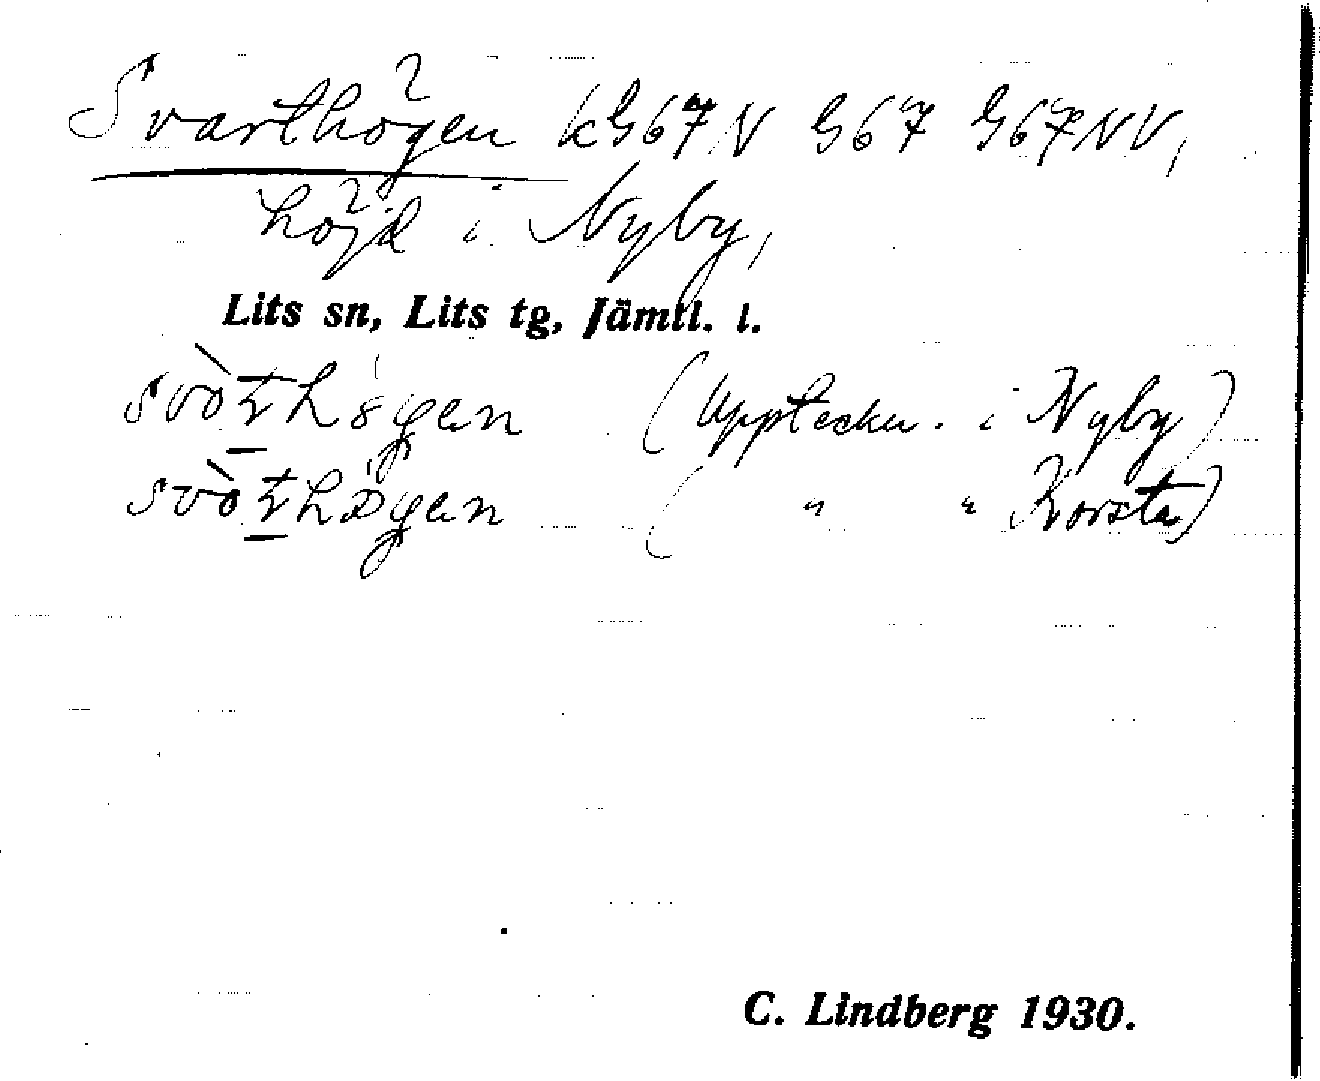 Svarthögen kG67N G67 G67NV,
höjd i Nyby,
Lits sn, Lits tg, Jämtl. l.
(Uppteckn. i Nyby)
( " " Korsta)
C. Lindberg 1930.